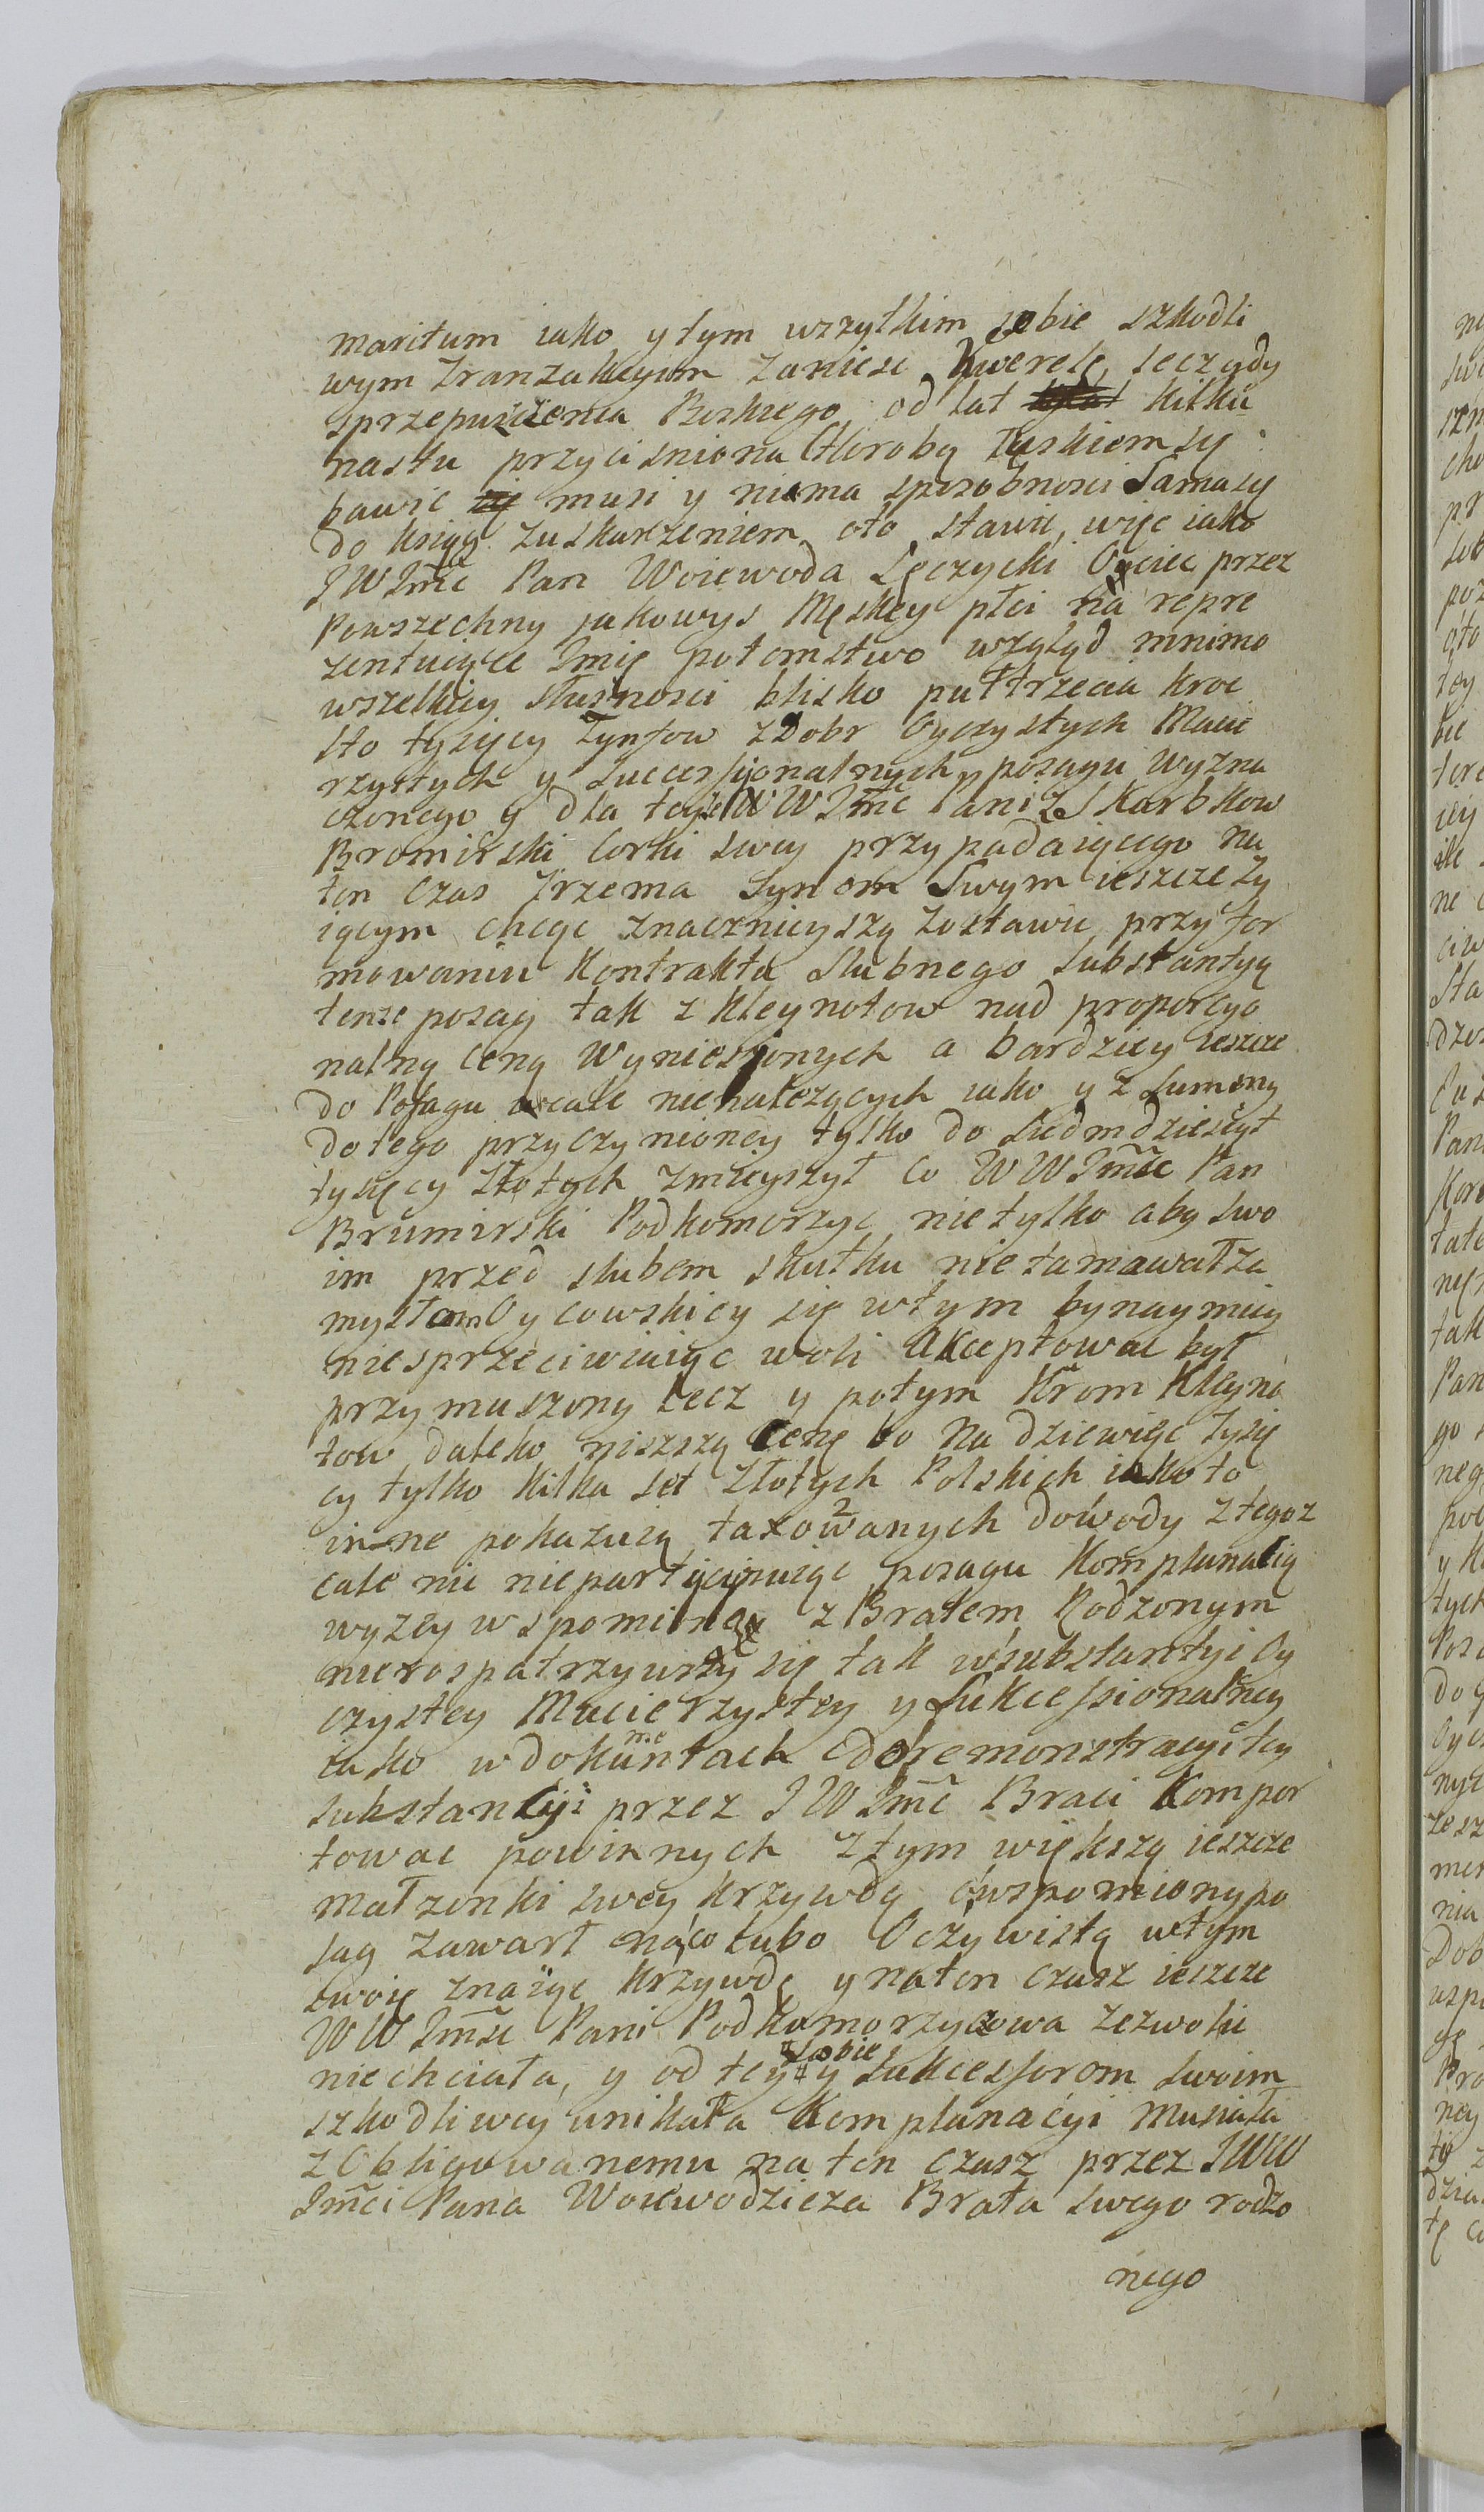 maritum iako y tym wszytkim sobie szkodli
wym Tranzakcyiom zaniesc Kwerelę, lecz gdy
zprzepuszczenia Boskiego od lat kilku
nastu przycisniona Chorobą łuskiem sy
bawic musi y niema sposobnosci Samasy
do ksiąg zuskarzeniem oto stawic, więc iako
JWJmc Pan Woiewoda Lęczycki Oyciec przez
Powszechny jakowys Męskey płci na repre
zentuiące Jmię potomstwo wzgląd mnimo
wszelkiey słusznosci blisko pułtrzecia kroc
sto tysięcy Tynfow z Dobr Oyczystych Macie
rzystych y Successyonalnych posagu wyzna
czonego y dla teyze WWJmc Pani z Skarbkow
Bromirski Corki swey przypadaiącego na
ten czas Trzema Synom Swym ieszcze ży
iącym chcąc znacznieyszą zostawic przy for
mowaniu Kontraktu Slubnego Substantyą
tenze posag tak z Kleynotow nad proporcyo
nalną Ceną Wyniesionych a bardziey ieszcze
do Posagu wcale nienależących iako y z Summy
dotego przyczynioney tylko do Siedmdziesiąt
tysięcy Złotych zmieyszył Co WWJmsc Pan
Brumirski Podkomorzyc nietylko aby swo
im przed slubem skutku nietamawał za
mysłom Oycowskiey się wtym bynaymiey
niesprzeciwiaiąc woli Akceptowac był
przymuszony Lecz y potym Krom Kleyno
tow daleko niszszą Cenę bo na dziewięc tysię
cy tylko kilka set Złotych Polskich iako to
inne pokazuią taxowanych dowody ztegoz
cale nic niepartycypuiąc posagu Komplanacią
wyzey wspomioną z Bratem Rodzonym
nierospatrzywszy się tak w substantyi Oy
czystey Macierzystey y Sukcessionalney
iako w dokumentach do remonstracyi tey
substancyi przez JWJmc Braci Kompor
towac powinnych ztym większą ieszcze
małzonki swey krzywdą owspomiony po
sag zawarł náco lubo Oczywistą wtym
swoię znaiąc krzywdę y naten czasz ieszcze
WWJmsc Pani Podkomorzycowa zezwolic
niechciała, y od tey sobie y Sukcessorom swoim
szkodliwey unikała Komplanacyi Musiała
zObligowanemu na ten czasz przez JWW
Jmci Pana Woiewodzica Brata swego rodzo
nego